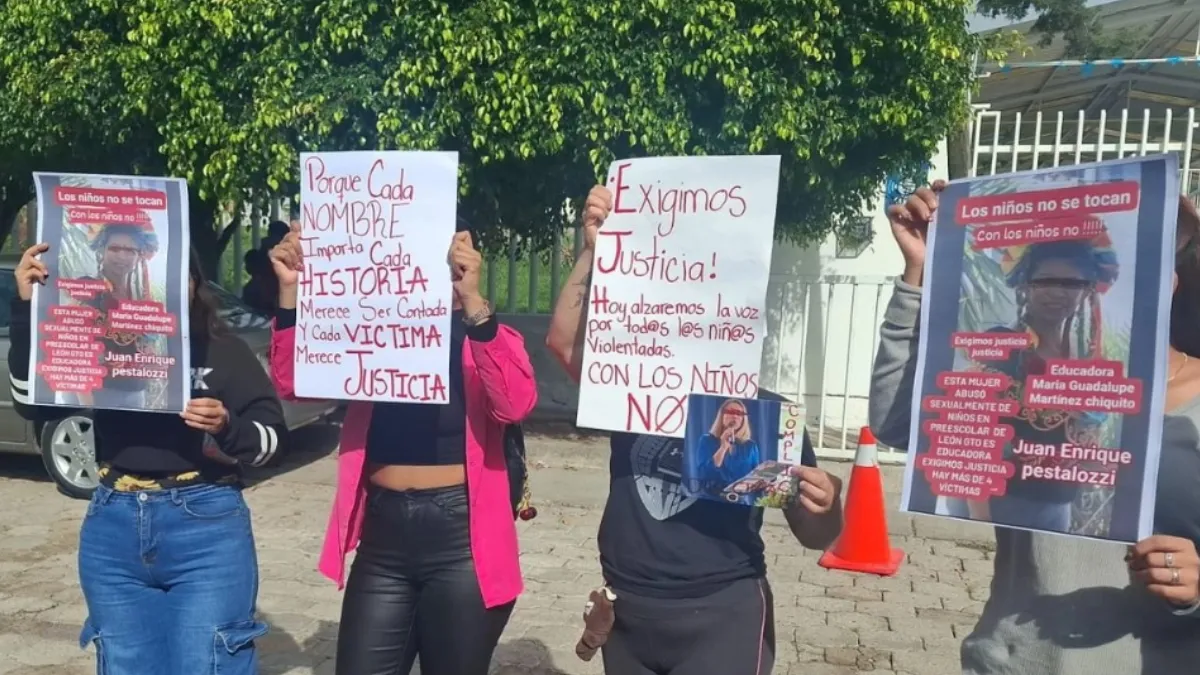 Los niños no se tocan
Con los niños no !!!!!
Exigimos justicia
justicia
ESTA MUJER
ABUSO
SEXUALMENTE DE
NIÑOS EN
PREESCOLAR DE
LEÓN GTO ES
EDUCADORA,
EXIGIMOS JUSTICIA
HAY MAS DE 4
VÍCTIMAS
Educadora
Maria Guadalupe
Martínez chiquito
Juan Enrique
pestalozzi
Porque Cada
NOMBRE
Importa Cada
HISTORIA
Merece Ser Contada
Y Cada VICTIMA
Merece
JUSTICIA
¡Exigimos
Justicia!
Hoy alzaremos la voz
por tod@s l@s niñ@s
Violentadas.
CON LOS NIÑOS
NO
COMPL
Los niños no se tocan
Con los niños no !!!!!
Exigimos justicia
justicia
ESTA MUJER
ABUSO
SEXUALMENTE DE
NIÑOS EN
PREESCOLAR DE
LEÓN GTO ES
EDUCADORA,
EXIGIMOS JUSTICIA
HAY MAS DE 4
VÍCTIMAS
Educadora
Maria Guadalupe
Martínez chiquito
Juan Enrique
pestalozzi